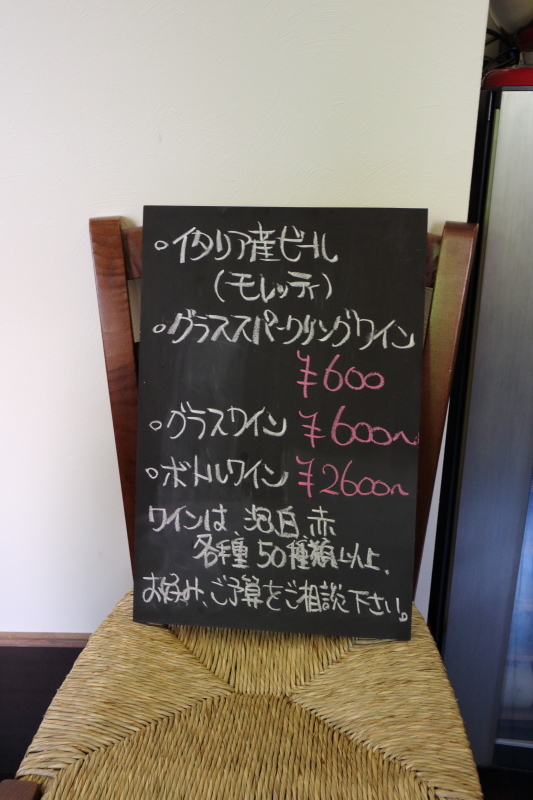 ・イタリア産ビール
(モレッティ)
・グラススパークリングワイン
¥600
・グラスワイン ¥600〜
・ボトルワイン ¥2600〜
ワインは、泡白赤
各種50種類以上、
お好み、ご予算をご相談下さい。